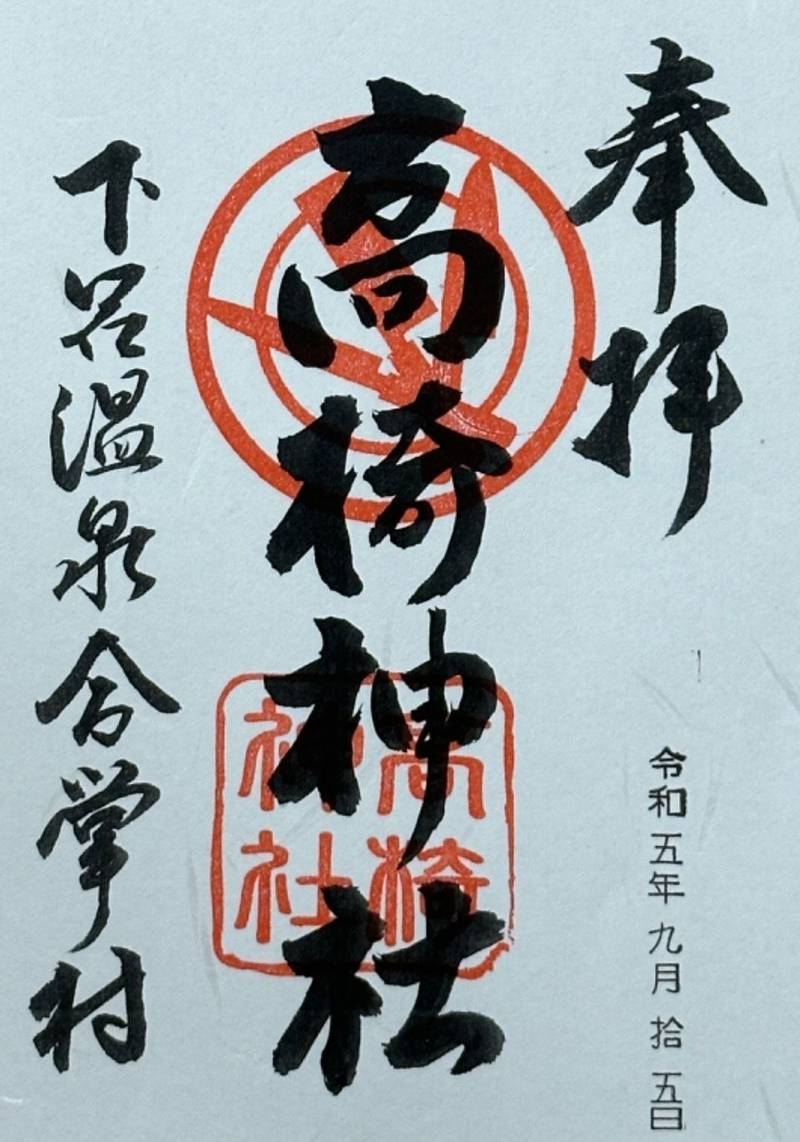 奉拝
令和五年九月拾五日
高椅神社
高椅
神社
下呂温泉合掌村